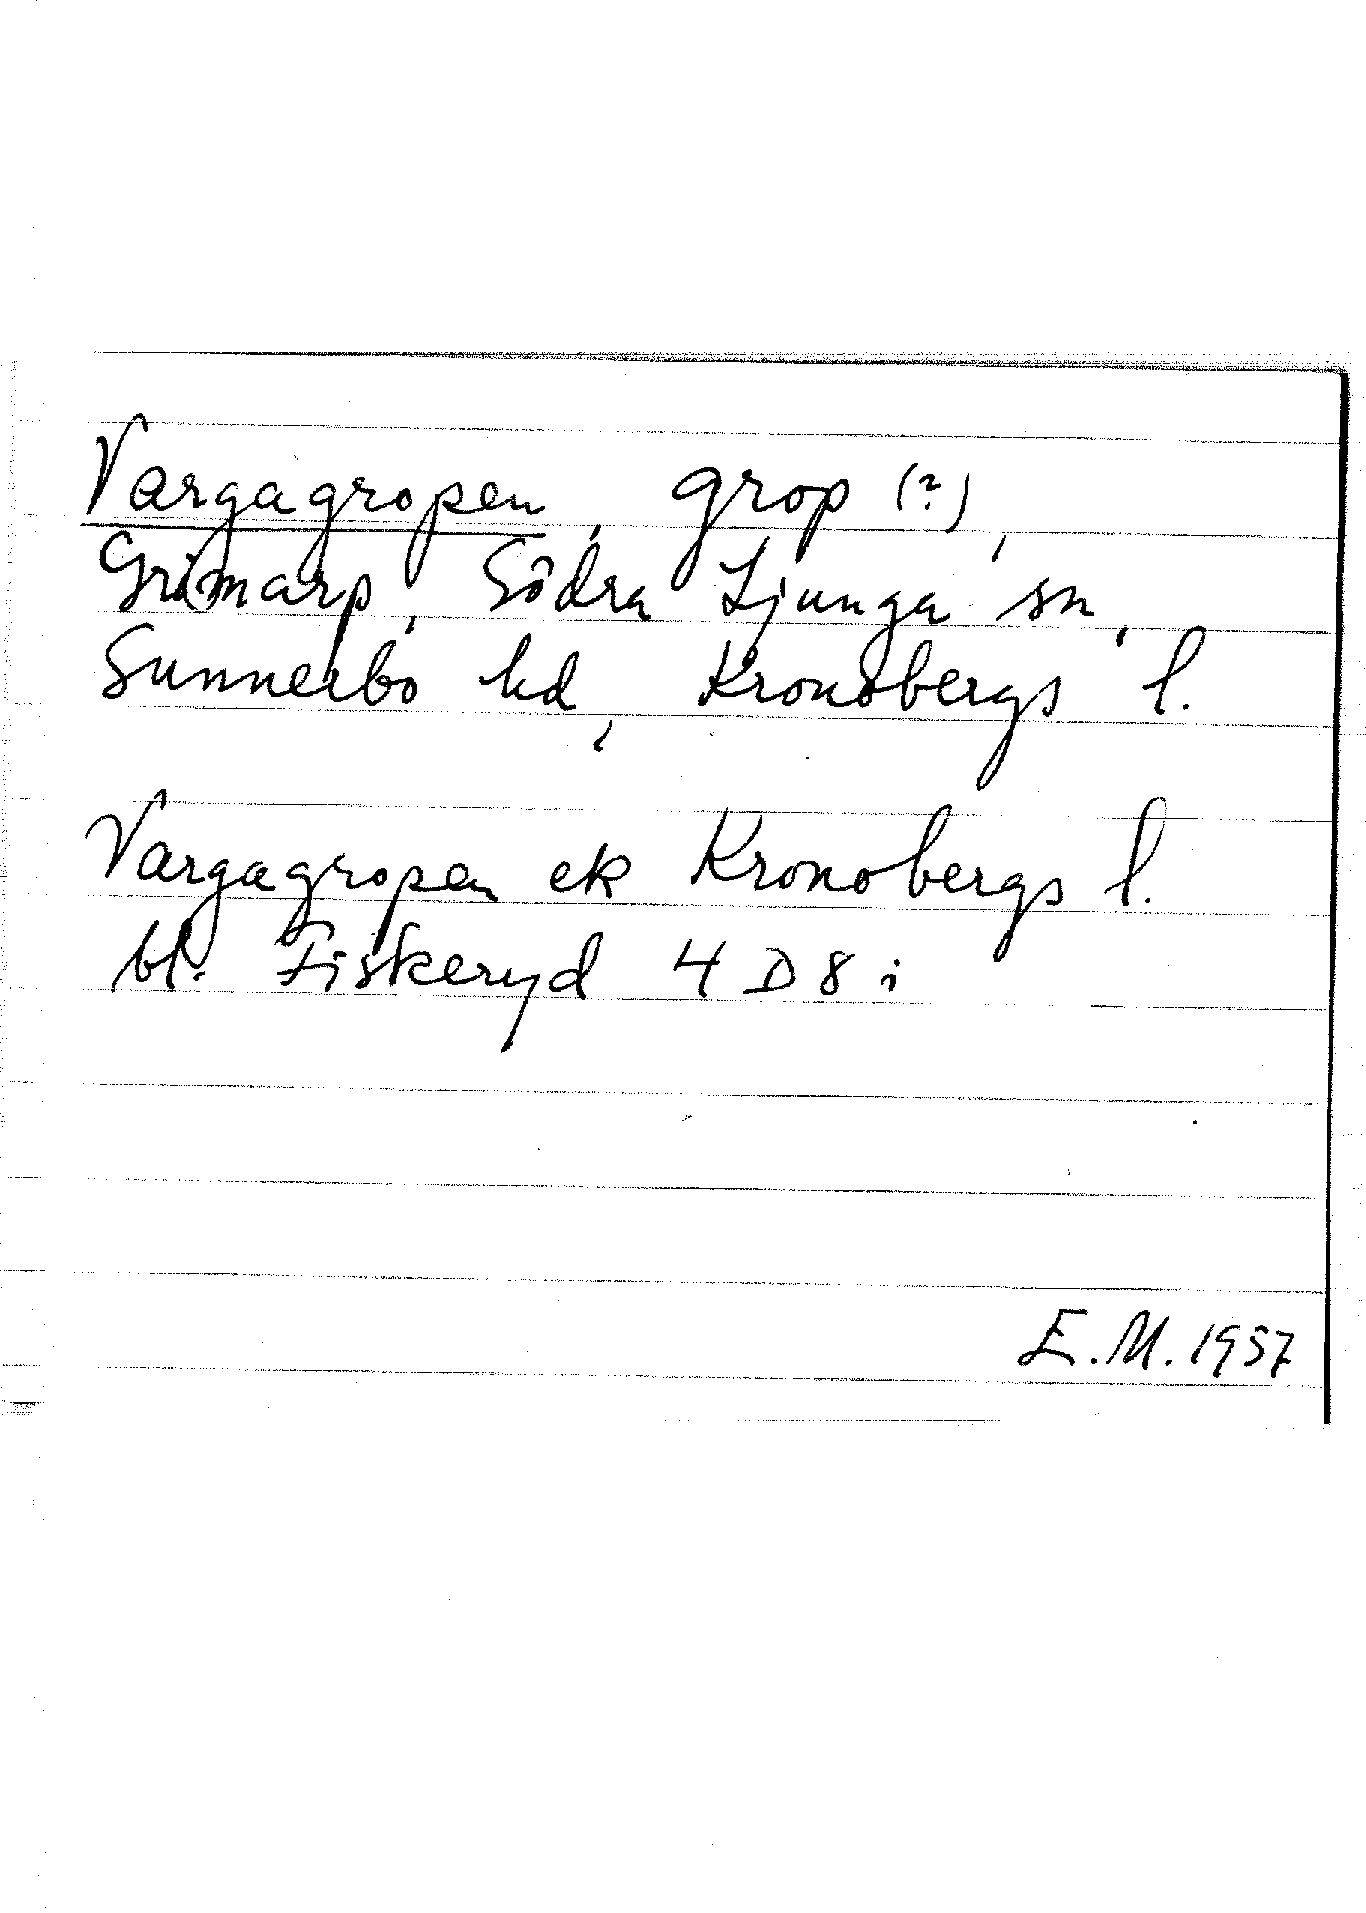 Vargagropen, grop (?),
Grimarp, Södra Ljunga sn,
Sunnerbo hd, Kronobergs l.
Vargagropen ek Kronobergs l.
bl. Fiskeryd 4 D 8 i
E.M. 1957